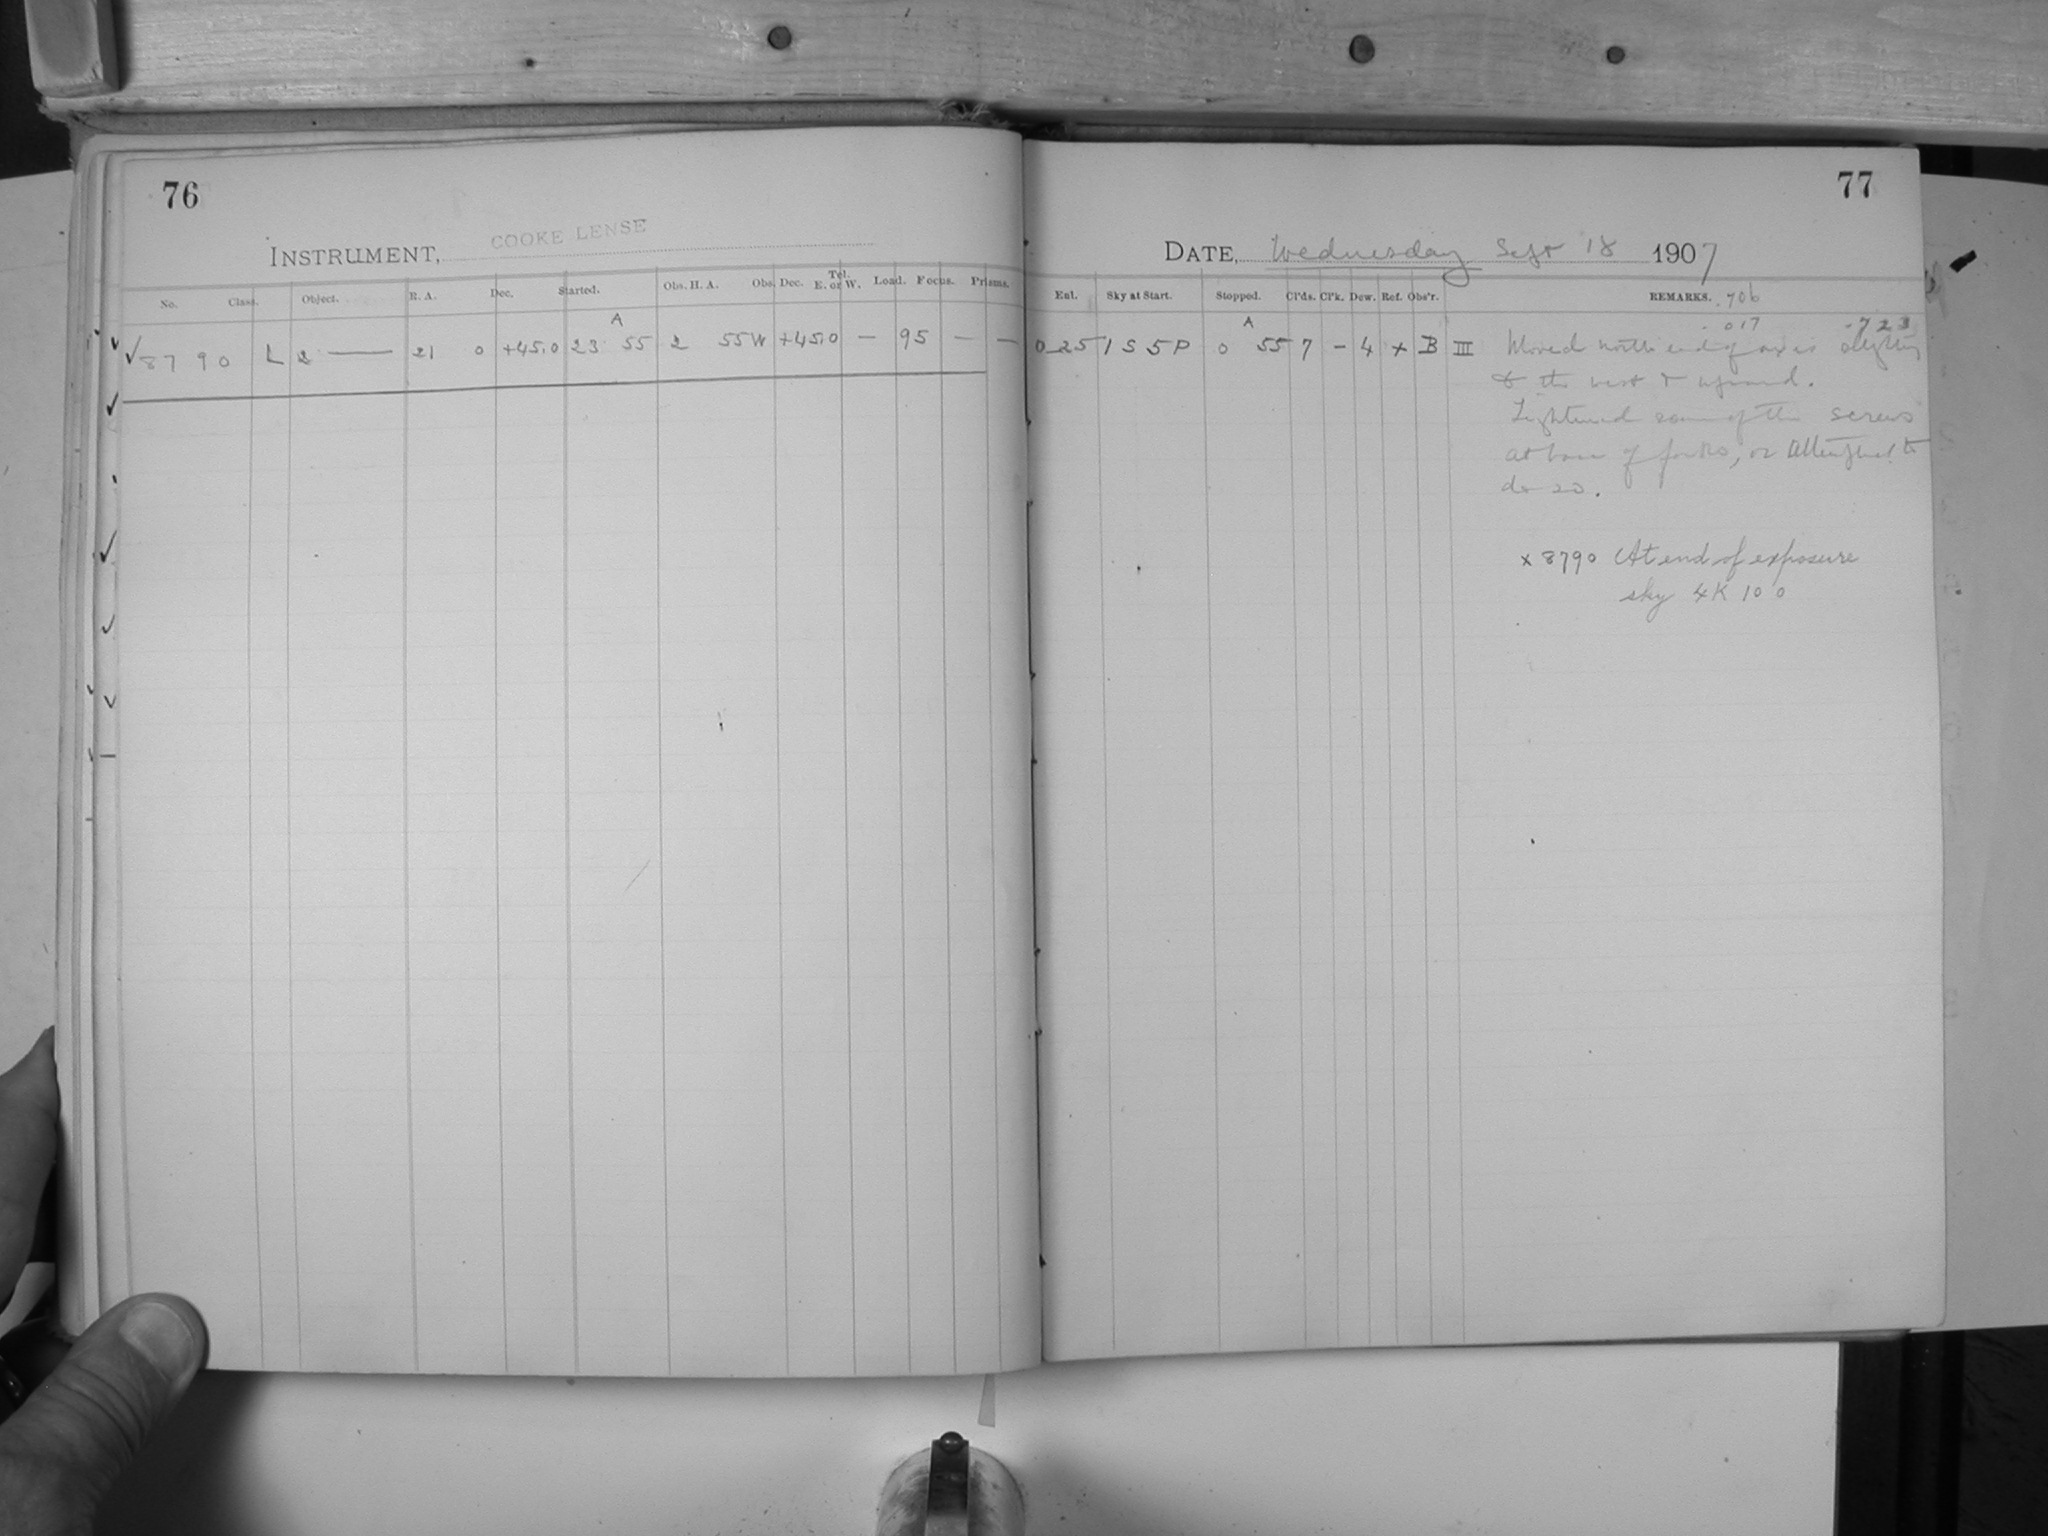 76
INSTRUMENT, COOKE LENSE
No. Class. Object. R. A. Dec. Started. Obs. H. A. Obs. Dec. Tel. E. or W. Load. Focus. Prisms.
A
✓8790 L 2 — 21 0 +45.0 23 55 2 55W +45.0 — 95 — —
77
DATE, Wednesday Sept 18 1907
Ext. Sky at Start. Stopped. Cl'ds. Cl'k. Dew. Ref. Obs'r. REMARKS. .706
.017 .723
A
0 25 1S 5P 0 55 7 – 4 x B III Moved north end of axis slightly
to the west & upward.
Tightened some of the screws
at base of forks, or attempted to
do so.
x 8790 At end of exposure
sky 4K 10 0